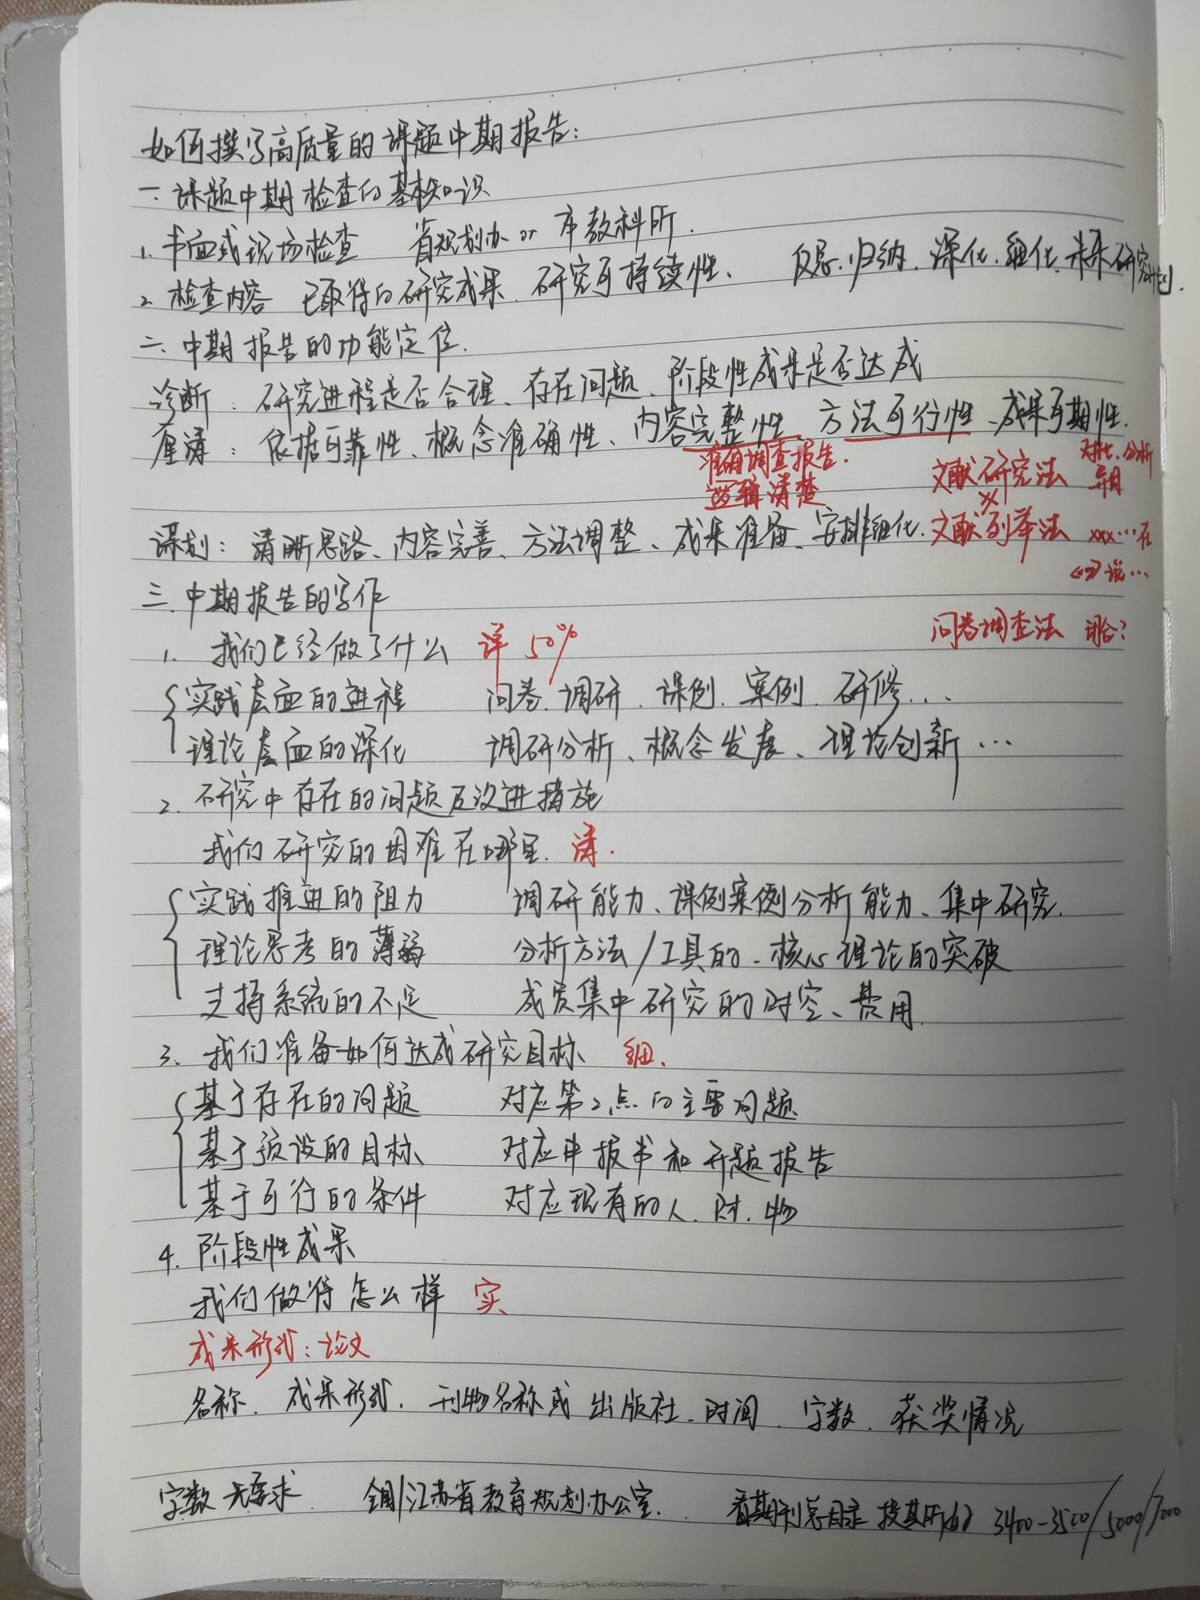 如何撰写高质量的课题中期报告：
一.课题中期检查的基本知识
1. 书面或现场检查 省规划办 or 市教科所.
2. 检查内容 已取得的研究成果、研究可持续性、 反思、归纳、深化、细化、未来研究计划.
二.中期报告的功能定位.
诊断：研究进程是否合理、存在问题、阶段性成果是否达成
厘清：依据可靠性、概念准确性、内容完整性、方法可行性、成果可期性.
准确调查报告. 文献研究法 对比、分析
逻辑清楚 × 异同
谋划：清晰思路、内容完善、方法调整、成果准备、安排细化. 文献列举法 xxx…在
《 》说…
三.中期报告的写作
问卷调查法 适合？
1. 我们已经做了什么 详 50%
实践层面的进程 问卷、调研、课例、案例、研修…
理论层面的深化 调研分析、概念发展、理论创新…
2. 研究中存在的问题及改进措施
我们研究的困难在哪里. 清.
实践推进的阻力 调研能力、课例案例分析能力、集中研究.
理论思考的薄弱 分析方法/工具的、核心理论的突破
支持系统的不足 成员集中研究的时空、费用.
3. 我们准备如何达成研究目标 细.
基于存在的问题 对应第2点的主要问题
基于预设的目标 对应申报书和开题报告
基于可行的条件 对应现有的人、财、物
4. 阶段性成果
我们做得怎么样 实
成果形式：论文
名称、成果形式、刊物名称或出版社、时间、字数、获奖情况
字数 无要求. 全国/江苏省教育规划办公室. 看期刊总目录 投其所好 3400-3500/5000/7000